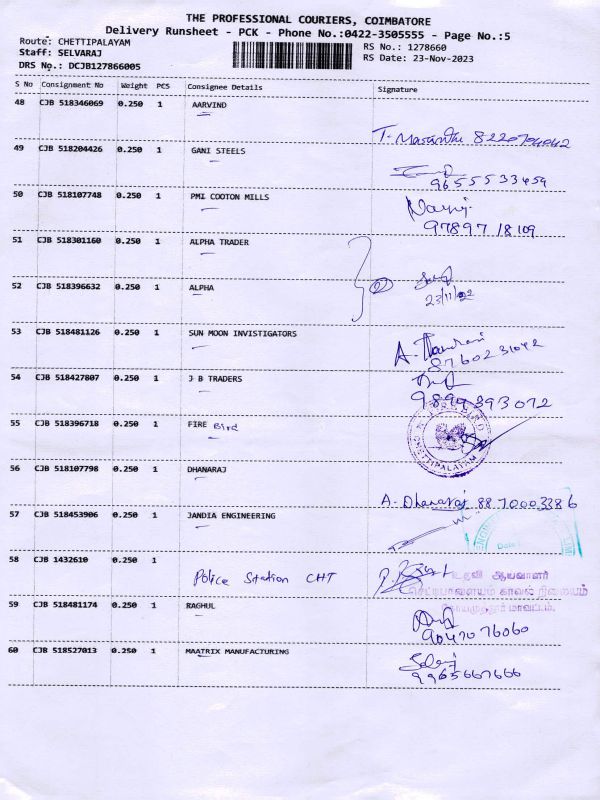 THE PROFESSIONAL COURIERS, COIMBATORE
Delivery Runsheet - PCK - Phone No.:0422-3505555 - Page No.:5
Route: CHETTIPALAYAM
Staff: SELVARAJ
DRS No.: DCJB127866005
RS No.: 1278660
RS Date: 23-Nov-2023
S No Consignment No Weight PCS Consignee Details Signature
48 CJB 518346069 0.250 1 AARVIND
49 CJB 518204426 0.250 1 GANI STEELS
9655533459
50 CJB 518107748 0.250 1 PMI COOTON MILLS
9789718109
51 CJB 518301160 0.250 1 ALPHA TRADER
52 CJB 518396632 0.250 1 ALPHA
2
53 CJB 518481126 0.250 1 SUN MOON INVISTIGATORS
54 CJB 518427807 0.250 1 J B TRADERS
9894393072
55 CJB 518396718 0.250 1 FIRE Bird
CHETTIPALAYAM
56 CJB 518107798 0.250 1 DHANARAJ
A. Dhanaraj 8870003386
57 CJB 518453906 0.250 1 JANDIA ENGINEERING
58 CJB 1432610 0.250 1
Police Station CHT
உதவி ஆய்வாளர்
செட்டிபாளையம் காவல் நிலையம்
கோயமுத்தூர் மாவட்டம்.
59 CJB 518481174 0.250 1 RAGHUL
9047076060
60 CJB 518527013 0.250 1 MAATRIX MANUFACTURING
9965667666